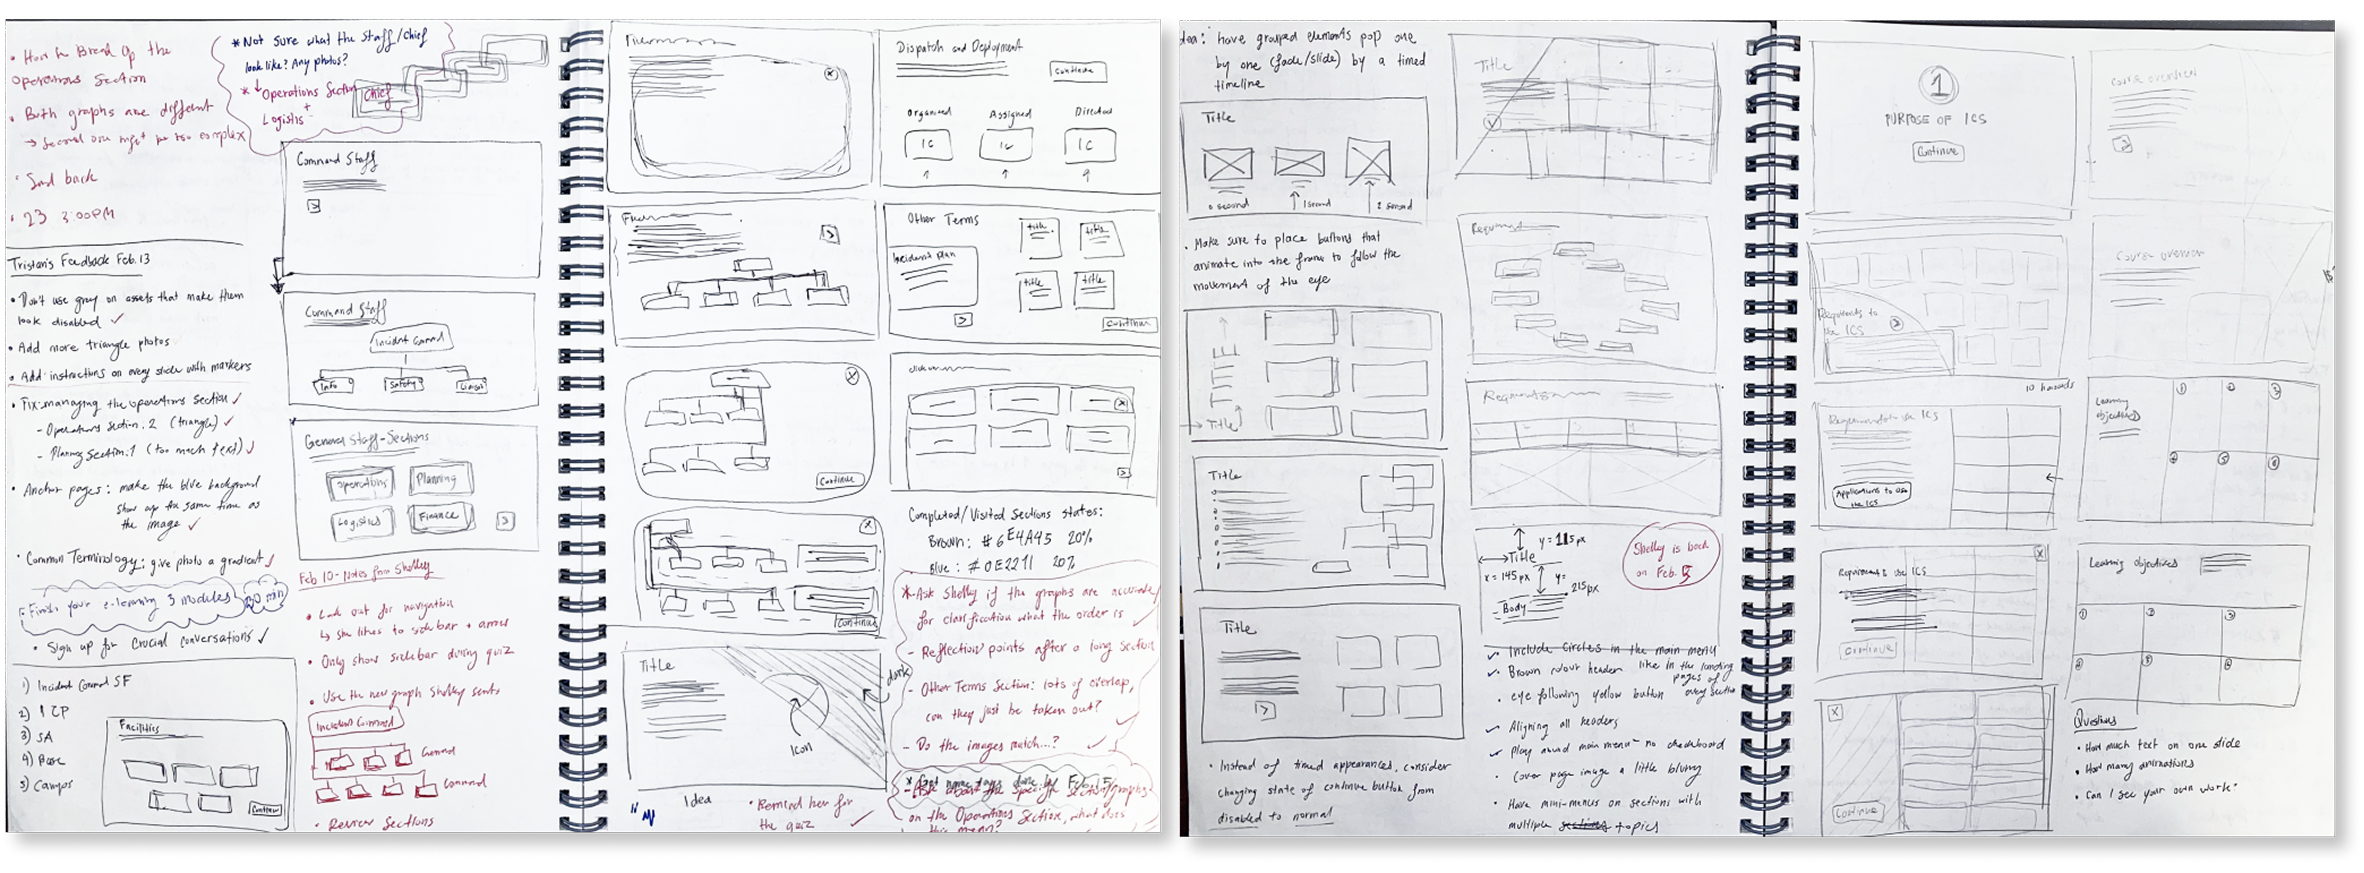 • How to Break Up the
Operations Section
• Both graphs are different
→ Second one might be too complex
• Send back
• 23 3:00PM
* Not sure what the Staff/Chief
look like? Any photos?
* ↓ Operations Section Chief
+
Logistics
Command Staff
>
Tristan's Feedback Feb. 13
• Don't use grey on assets that make them
look disabled ✓
• Add more triangle photos
• Add instructions on every slide with markers
• Fix managing the operations section ✓
- Operations Section. 2 (triangle) ✓
- Planning Section. 1 (too much text) ✓
• Anchor pages: make the blue background
show up the same time as
the image ✓
• Common Terminology: give photo a gradient ✓
Finish your e-learning 3 modules
30 min
• Sign up for Crucial Conversations ✓
Command Staff
Incident Command
Info
Safety
Liaison
General Staff-Sections
Operations
Planning
Logistics
Finance
>
1) Incident Command SF
2) ICP
3) SA
4) Base
5) Camps
Facilities
Continue
Feb 10 - Notes from Shelley
• Look out for navigation
↳ she likes to sidebar + arrow
• Only show sidebar during quiz
• Use the new graph Shelley sent
Incident Command
General
Command
• Review Sections
X
Dispatch and Deployment
Continue
Organized
Assigned
Directed
IC
IC
IC
>
Other Terms
Incident Plan
title
title
title
title
>
Continue
X
Continue
X
>
X
Continue
Completed/Visited Sections states:
Brown: #6E4A45 20%
Blue: #0E2211 20%
* Ask Shelley if the graphs are accurate
for clarification what the order is
- Reflection points after a long section
- Other Terms Section: lots of overlap,
can they just be taken out? ✓
- Do the images match...? ✓
on the Operations Section, what does
this mean?
Title
dark
Icon
Idea
• Remind her for
the quiz ✓
Idea: have grouped elements pop one
by one (fade/slide) by a timed
timeline
Title
0 second
1 second
2 second
• Make sure to place buttons that
animate into the frame to follow the
movement of the eye
TITLE
Title
Title
Title
>
• Instead of timed appearances, consider
changing state of continue button from
disabled to normal
Title
Title
y = 115px
x = 145px
y =
215px
Body
Shelley is back
on Feb. 5
✓ Include circles in the main menu
✓ Brown colour header like in the landing
pages of
every section
eye following yellow button
✓ Aligning all headers
✓ Play around main menu - no checkboard
• Cover page image a little blurry
• Have mini-menus on sections with
multiple sections topics
1
PURPOSE OF ICS
Continue
Course overview
>
Requirements to
use ICS
>
Course overview
10 hazards
Requirements to use ICS
Applications to use
the ICS
Learning
objectives
1
2
3
4
5
6
Requirements to use ICS
X
Continue
Learning objectives
1
2
3
4
5
6
X
Continue
Questions
• How much text on one slide
• How many animations
• Can I see your own work?